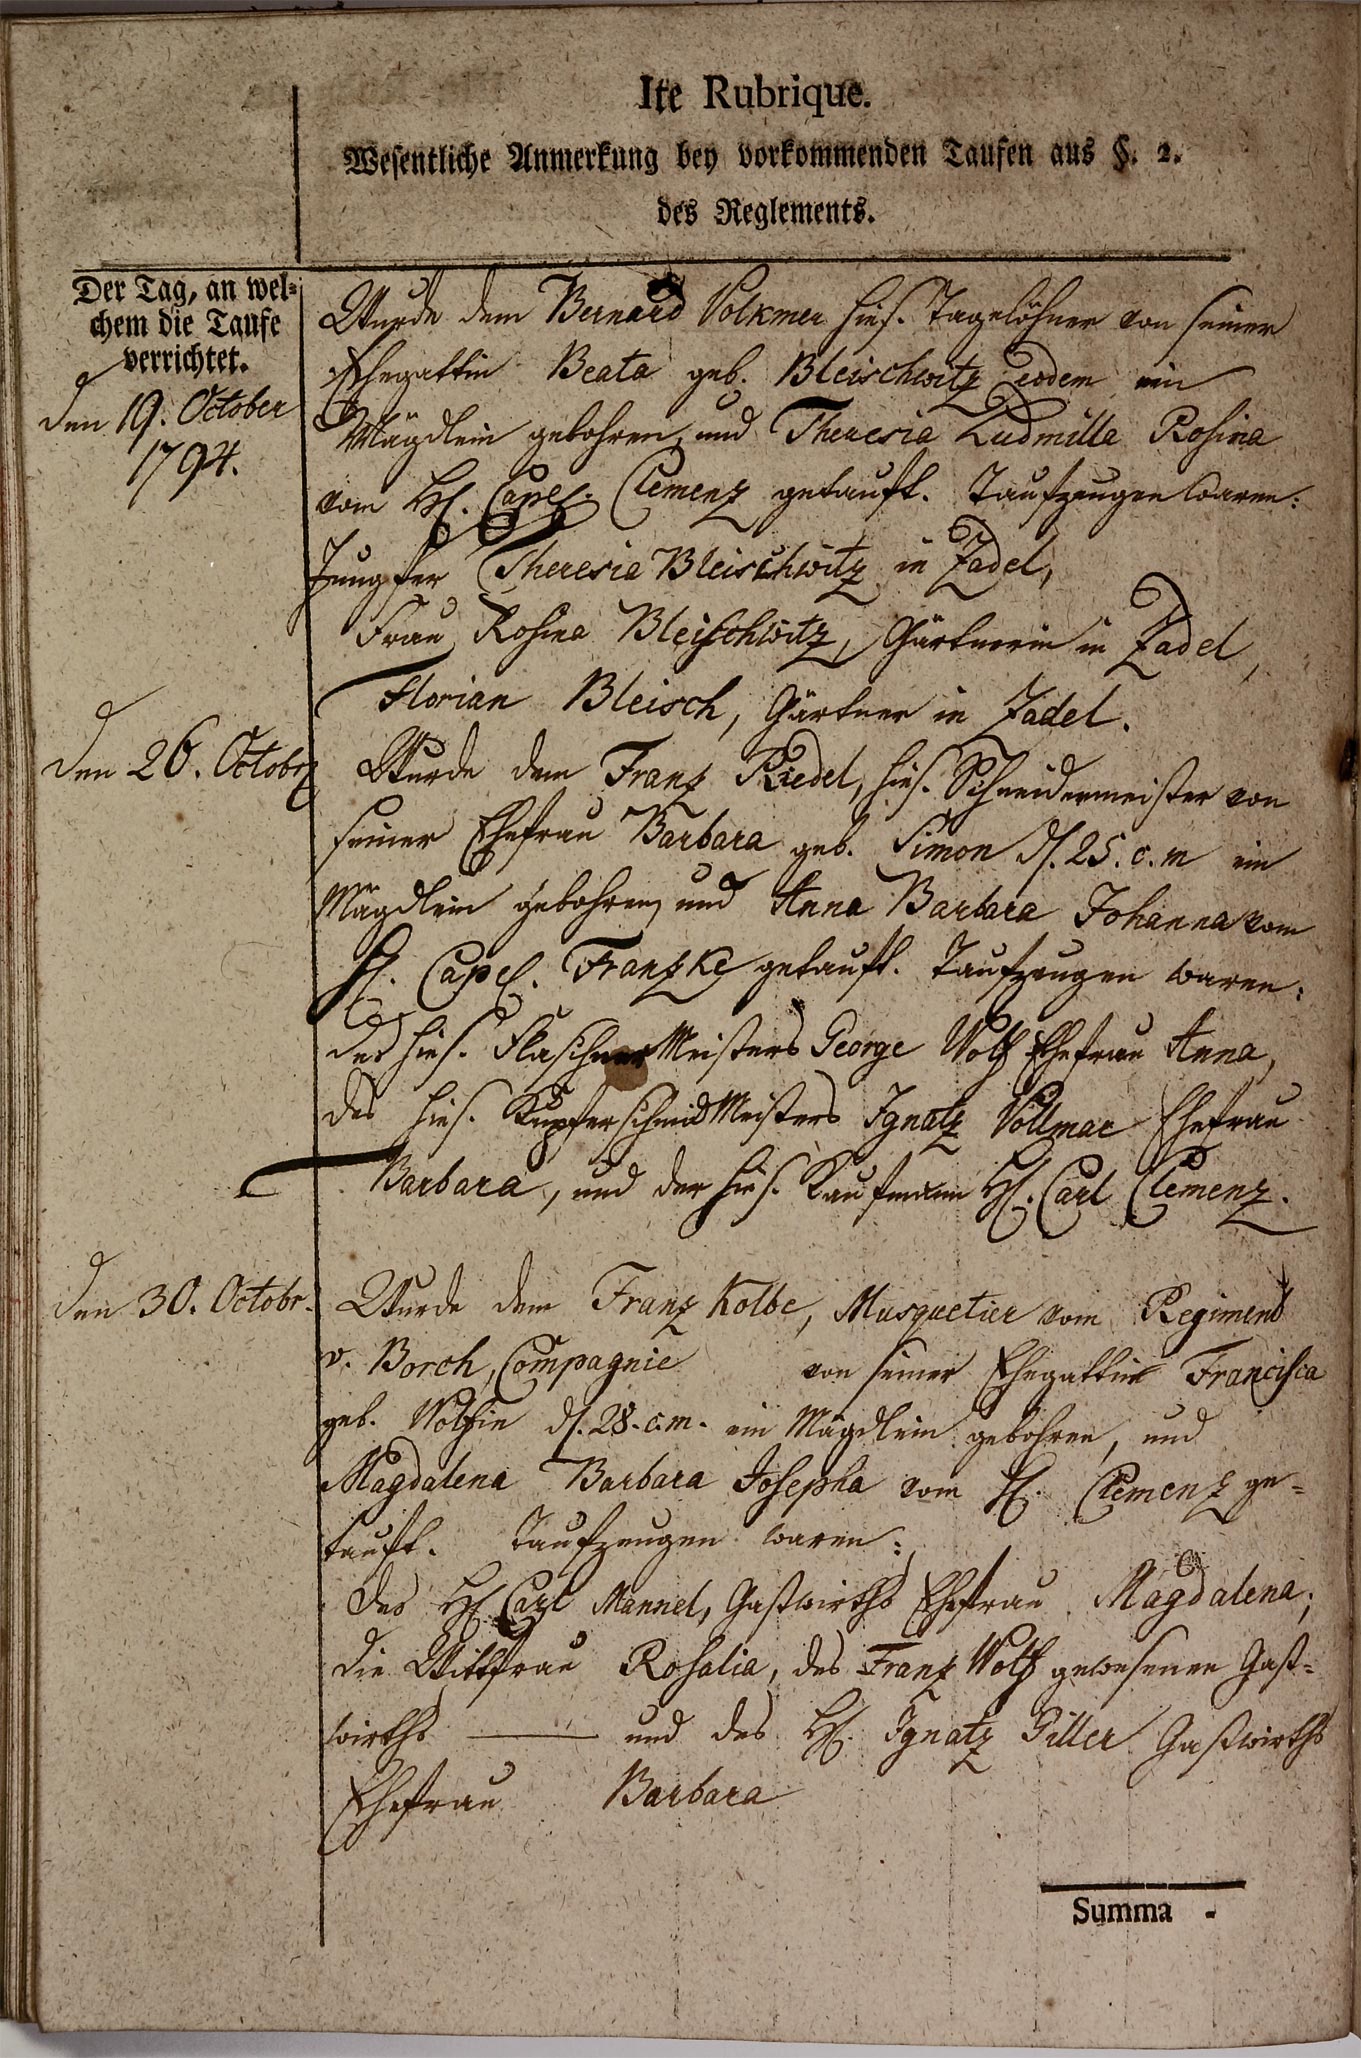 Ite Rubrique.
Wesentliche Anmerkung bey vorkommenden Taufen aus §. 2.
des Reglements.
Der Tag, an wel-
chem die Taufe
verrichtet.
den 19. October
1794.
Wurde dem Bernard Volkmer hies. Tagelöhner von seiner
Ehegattin Beata geb. Bleischwitz eodem ein
Mägdlein gebohren, und Theresia Ludmilla Rosina
vom H. Capel. Clemenz getauft. Taufzeugen waren:
Jungfer Theresia Bleischwitz in Zadel,
Frau Rosina Bleischwitz, Gärtnerin in Zadel,
Florian Bleisch, Gärtner in Zadel.
den 26. Octobr
Wurde dem Franz Riedel, hies. Schneidermeister von
seiner Ehefrau Barbara geb. Simon d. 25. c. m ein
Mägdlein gebohren, und Anna Barbara Johanna vom
H. Capel. Franzke getauft. Taufzeugen waren:
des hies. Flaschner Meisters George Wolf Ehefrau Anna,
des hies. Kupferschmid Meisters Ignatz Vollmar Ehefrau
Barbara, und der hies. Kaufmann H. Carl Clemenz.
den 30. Octobr.
Wurde dem Franz Kolbe, Musquetier vom Regiment
v. Borch, Compagnie von seiner Ehegattin Francisca
geb. Wolfin d. 28. c. m. ein Mägdlein gebohren, und
Magdalena Barbara Josepha vom H. Clemenz ge-
tauft. Taufzeugen waren:
des H. Carl Mannel, Gastwirths Ehefrau Magdalena;
die Wittfrau Rosalia, des Franz Wolf gewesenen Gast-
wirths und des H. Ignatz Giller Gastwirths
Ehefrau Barbara
Summa -